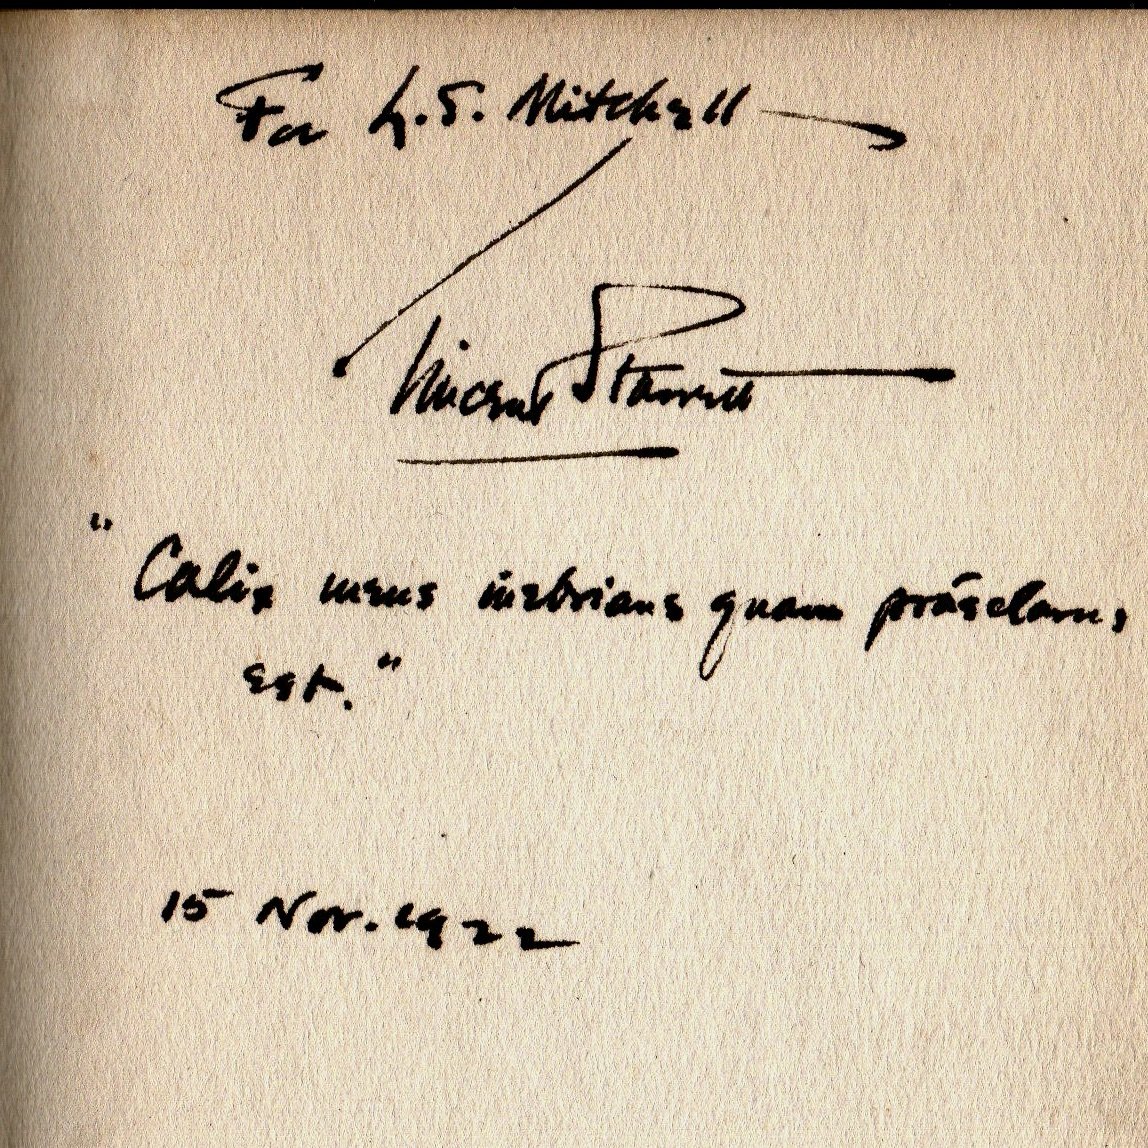 For L.S. Mitchell
Vincent Starrett
"Calix meus inebrians quam präeclarus
est."
15 Nov. 1922